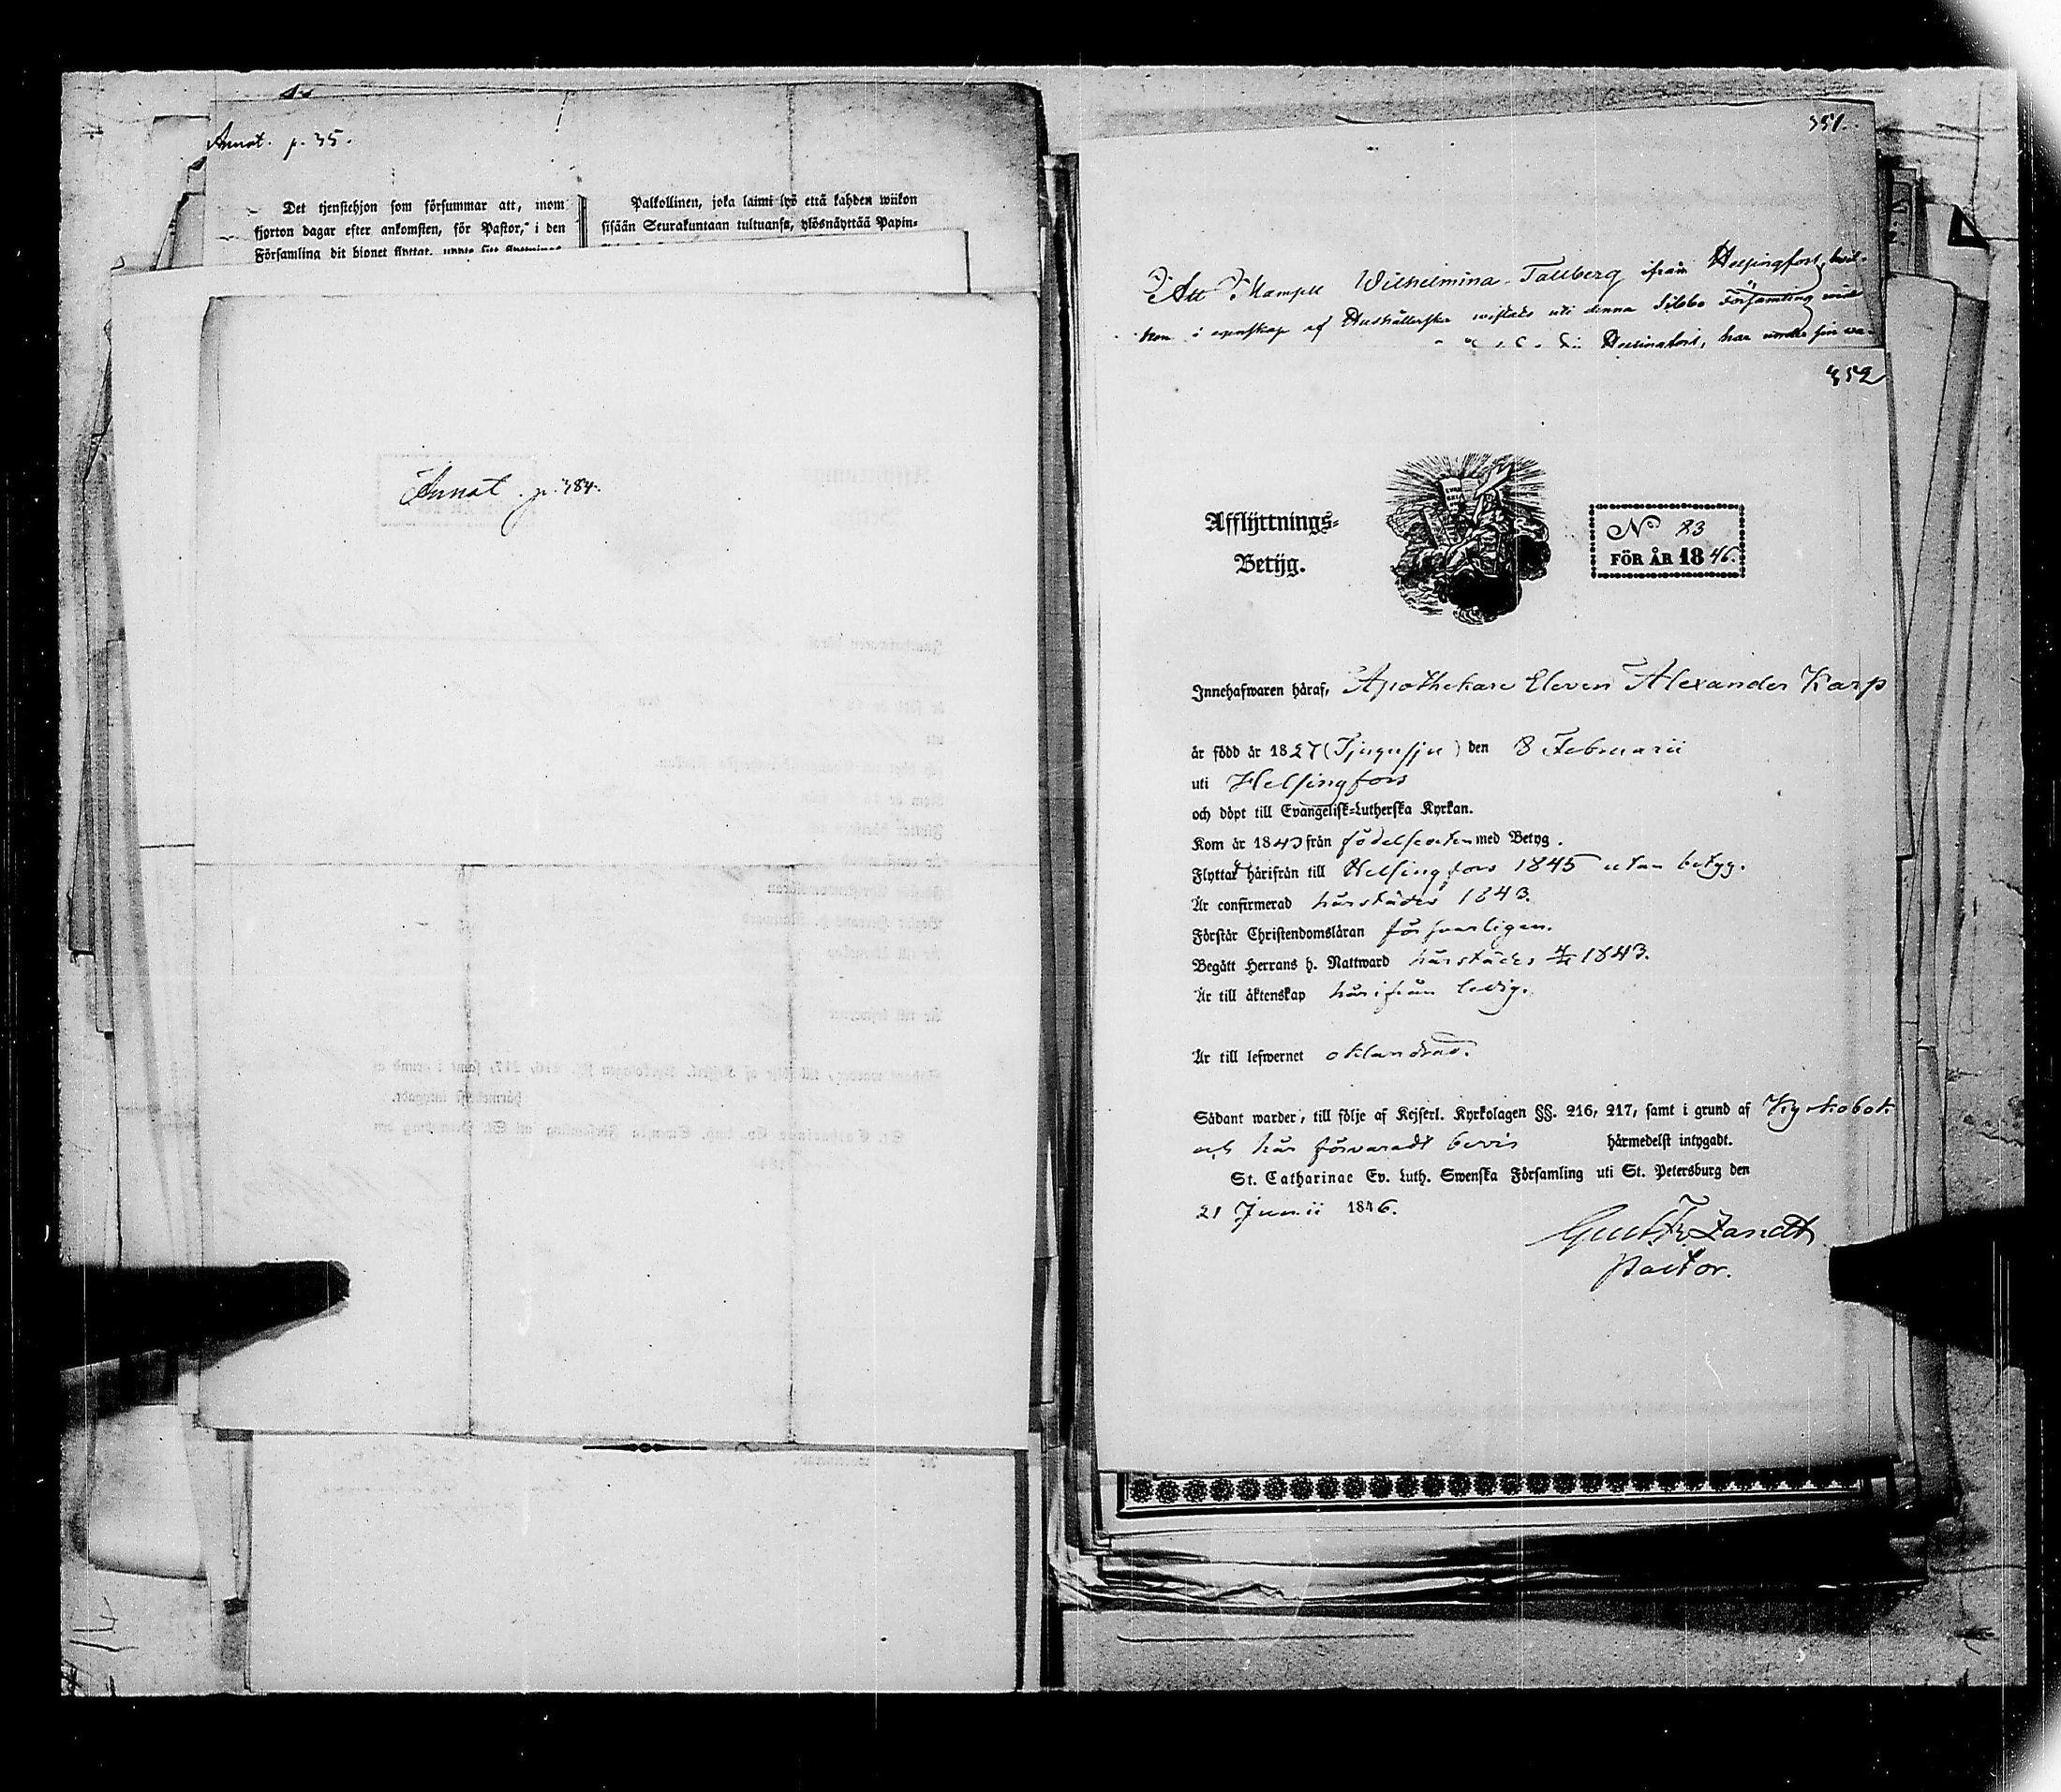 Annot. p. 35.
Det tjenstehjon som försummar att, inom
fjorton dagar efter ankomsten, för Pastor, i den
Församling dit hjonet flyttat, uppte sitt
Palkollinen, joka laimi lyö että kahden wiikon
sisään Seurakuntaan tultuansa, ylösnäyttää Papin-
Annot. p. 184.
351.
Att Mamsell Wilhelmina Tallberg ifrån Helsingfors, hvil-
ken i egenskap af Hushållerska wistats uti denna Sibbo Församling
Helsingfors, har under sin wa-
352
Afflyttnings-
Betyg.
No 23
FÖR ÅR 1846.
Innehafwaren häraf, Apothekare Eleven Alexander Karp
är född år 1827 (Tjugusju) den 8 Februarii
uti Helsingfors
och döpt till Evangelisk-Lutherska Kyrkan.
Kom år 1843 från födelseorten med Betyg.
Flyttat härifrån till Helsingfors 1845 utan betyg.
Är confirmerad härstädes 1843.
Förstår Christendomsläran försvarligen.
Begått Herrans h. Nattward härstädes 1843.
Är till äktenskap härifrån ledig.
Är till lefwernet oklandrad.
Sådant warder, till följe af Kejserl. Kyrkolagen §§. 216, 217, samt i grund af Kyrkobok
och här förvaradt bevis härmedelst intygadt.
St. Catharinae Ev. Luth. Swenska Församling uti St. Petersburg den
21 Junii 1846.
Gust. Fr. Zandt
Pastor.